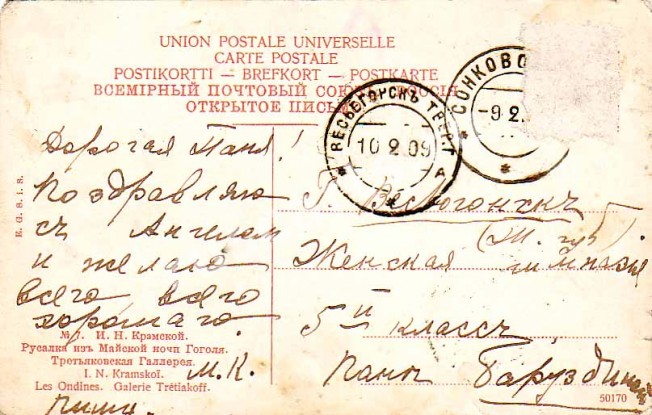 UNION POSTALE UNIVERSELLE
CARTE POSTALE
POSTIKORTTI — BREFKORT — POSTKARTE
ВСЕМІРНЫЙ ПОЧТОВЫЙ СОЮЗЪ РОССІЯ
ОТКРЫТОЕ ПИСЬМО
СОНКОВО
-9 2
ВЕСЬЕГОРСКЪ ТВЕР. Г
10 2 09
А
Дорогая Паня!
Поздравляю
съ Ангелом
и желаю
всего всего
хорошаго.
м. К.
пиши.
Г. Весьегонскъ
(Т. губ)
Женская гимназія
5й классъ
Пани Баруздиной
R. G. S. i. S.
М. Г. И. Н. Крамской.
Русалки изъ Майской ночи Гоголя.
Третьяковская Галлерея.
I. N. Kramskoï.
Les Ondines. Galerie Trétiakoff.
50170